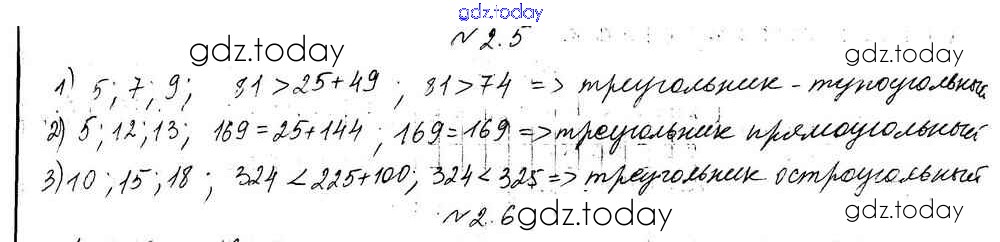 gdz.today
№ 2.5
gdz.today gdz.today
1) 5; 7; 9; 81 > 25 + 49; 81 > 74 => треугольник - тупоугольный
2) 5; 12; 13; 169 = 25 + 144; 169 = 169 => треугольник прямоугольный
3) 10; 15; 18; 324 < 225 + 100; 324 < 325 => треугольник остроугольный
№ 2.6
gdz.today gdz.today gdz.today